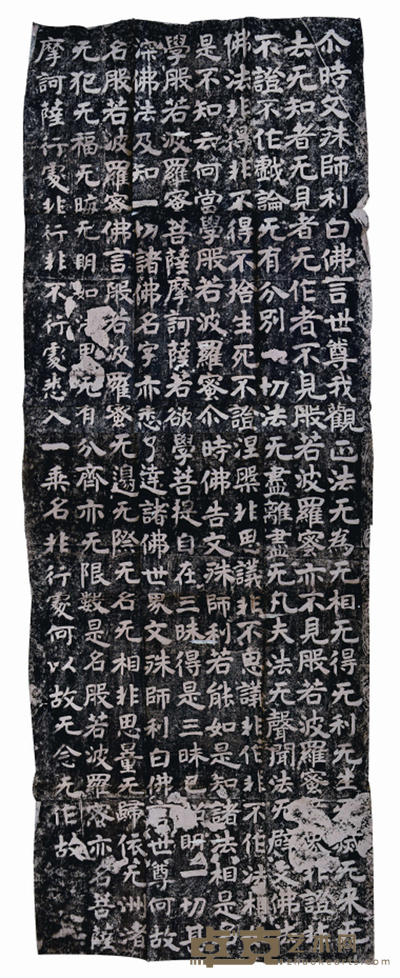 尒時文殊師利白佛言世尊我觀正法无為无相无得无利无生无滅无来无
去无知者无見者无作者不見般若波羅蜜亦不見般若波羅蜜界非證非
不證不作戲論无有分別一切法无盡離盡无凡夫法无聲聞法无辟支佛法
佛法非得非不得不捨生死不證涅槃非思議非不思議非作非不作法相如
是不知云何當學般若波羅蜜尒時佛告文殊師利若能如是知諸法相是名
學般若波羅蜜菩薩摩訶薩若欲學菩提自在三昧得是三昧已照明一切甚
深佛法及知一切諸佛名字亦悉了達諸佛世界文殊師利白佛言世尊何故
名般若波羅蜜佛言般若波羅蜜无邊无際无名无相非思量无歸依无洲渚
无犯无福无晦无明如法界无有分齊亦无限數是名般若波羅蜜亦名菩薩
摩訶薩行處非行非不行處悉入一乘名非行處何以故无念无作故